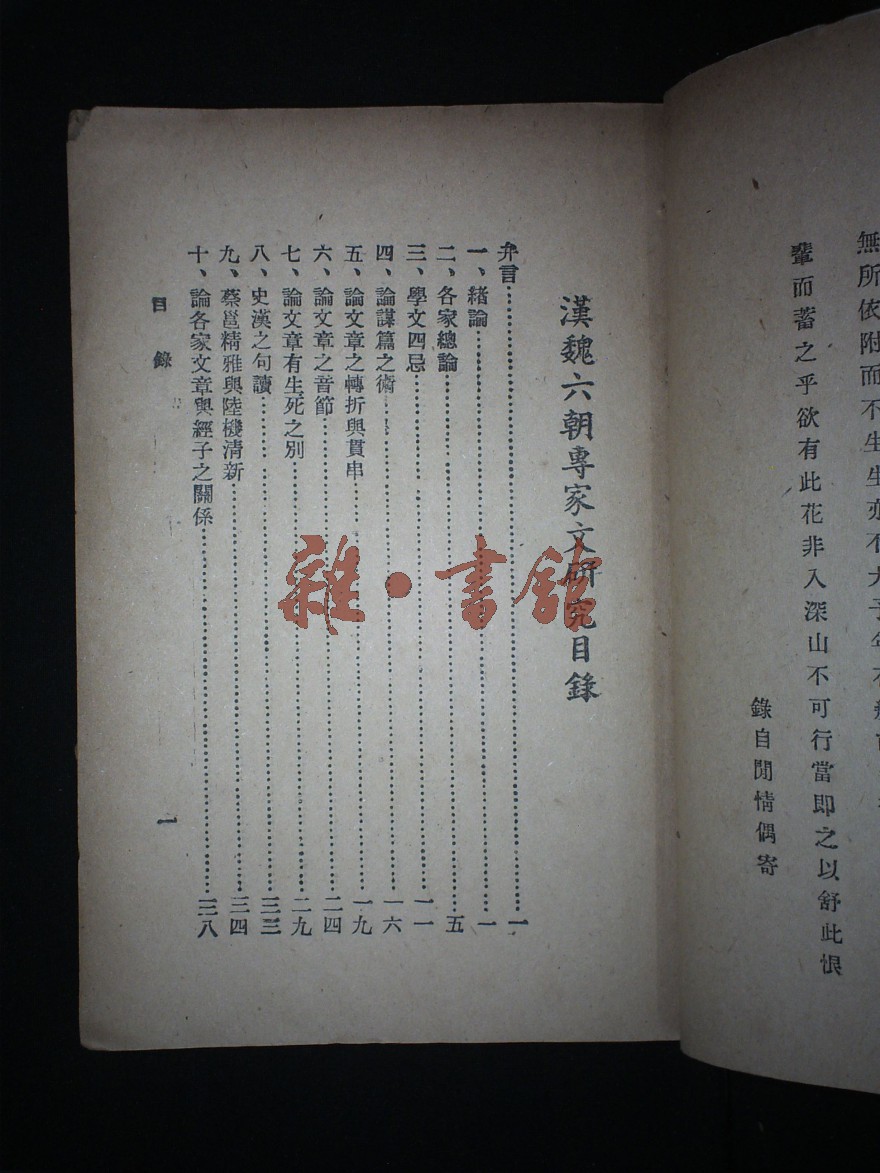 無所依附而不生生亦不大予年有
輦而蓄之乎欲有此花非入深山不可行當即之以舒此恨
錄自閒情偶寄
漢魏六朝專家文研究目錄
弁言……一
一、緒論……一
二、各家總論……五
三、學文四忌……一一
四、論謀篇之術……一六
五、論文章之轉折與貫串……一九
六、論文章之音節……二四
七、論文章有生死之別……二九
八、史漢之句讀……三三
九、蔡邕精雅與陸機清新……三四
十、論各家文章與經子之關係……三八
目錄
一
雜·書館